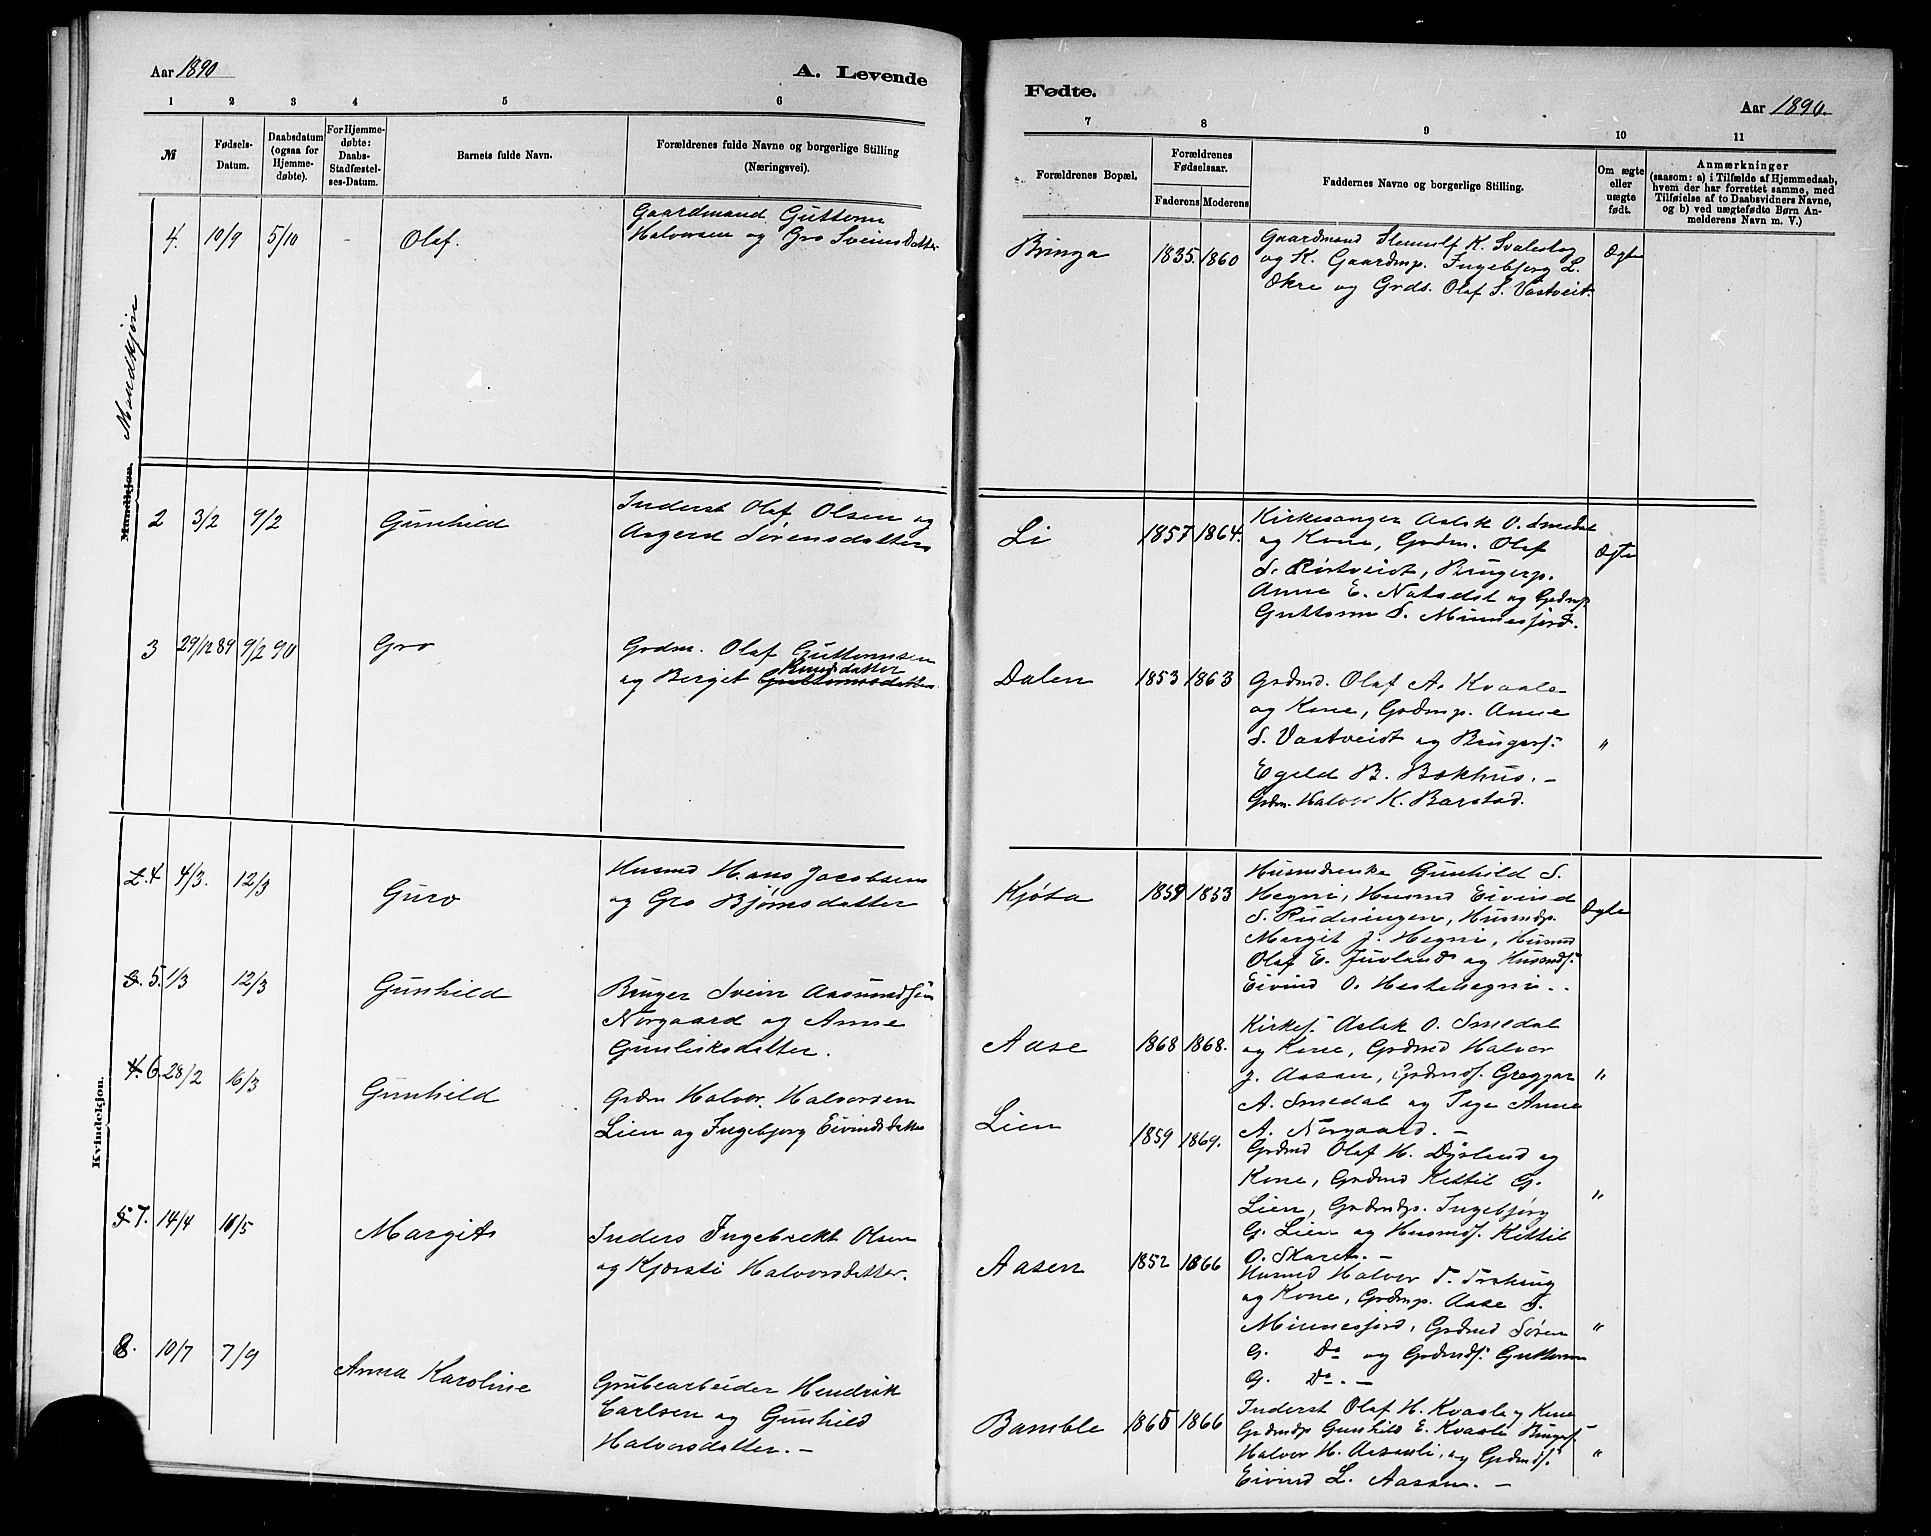 Aar 1890
A. Levende
1 2 3 4 5 6
№
Fødsels-
Datum.
Daabsdatum
(ogsaa for
Hjemme-
døbte).
For Hjemme-
døbte:
Daabs-
Stadfæstel-
ses-Datum.
Barnets fulde Navn.
Forældrenes fulde Navne og borgerlige Stilling
(Næringsvei).
Mandkjøn
4. 10/9 5/10 - Olaf.
Gaardmand Guttorm
Halvorsen og Gro Sveinsdatter
Mandkjøn.
2 3/2 9/2 Gunhild
Inderst Olaf Olsen og
Aagerd Sørensdatter
3 29/12 89 9/2 90 Gro
Grdm. Olaf Guttormsen
Knudsdatter
og Berget Guttormsdatter
2. 4 4/3. 12/3 Guro
Husmd Hans Jacobsen
og Gro Bjørnsdatter
3. 5. 1/3 12/3 Gunhild
Bruger Svein Aasmundsen
Norgaard og Anne
Gunleiksdatter.
Kvindekjøn.
4. 6. 28/2 16/3 Gunhild
Grdm Halvor Halvorsen
Lien og Ingebjorg Eivindsdatter
5 7. 14/4 11/5 Margit
Inders Ingebrekt Olsen
og Kjersti Halvorsdatter.
8. 10/7 7/9 Anna Karoline
Grubearbeider Hendrik
Carlsen og Gunhild
Halvorsdatter. -
Fødte.
Aar 1890.
7 8 9 10 11
Forældrenes Bopæl.
Forældrenes
Fødselsaar.
Faderens Moderens
Faddernes Navne og borgerlige Stilling.
Om ægte
eller
uægte
født.
Anmærkninger
(saasom: a) i Tilfælde af Hjemmedaab,
hvem der har forrettet samme, med
Tilføielse af to Daabsvidners Navne,
og b) ved uægtefødte Børn An-
melderens Navn m. V.)
Bringa 1835. 1860
Gaardmand Steinulf K. Svalestog
og K. Gaardmp. Ingebjorg L.
Økre og Grds. Olaf S. Vastveit.
Ægte
Li 1857 1864.
Kirkesanger Aslak O. Smedal
og Kone, Grdm. Olaf
S. Ristveidt, Brugerp.
Anne E. Natadal og Grdmp
Guttorm S. Minnesjord.
Ægte
Dalen 1853 1863
Grdmd. Olaf A. Kvaale
og Kone, Grdmp. Anne
S. Vastveidt og Brugers.
Egeld B. Bakhus. -
Grdm. Halvor K. Barstad.
"
Kjøta 1858 1853
Husmdenke Gunhild S.
Hegni, Husmd Eivind
S. Rudningen, Husmdp.
Margit J. Hegni, Husmd
Olaf E. Juvland og Husmds.
Eivind O. Hestehegni. -
Ægte
Aase 1868 1868.
Kirkes. Aslak O. Smedal
og Kone, Grdmd Halvor
J. Aasen, Grdmds. Greggar
A. Smedal og Pige Anne
A. Norgaard. -
"
Lien 1859 1869.
Grdmd Olaf H. Dysland og
Kone, Grdmd Kittil G.
Lien, Grdmdp. Ingebjorg
G. Lien og Husmds. Kittil
O. Skaret. -
"
Aasen 1852 1866
Husmd Halvor T.
og Kone, Grdmp. Aase S.
Minnesjord, Grdmd Søren
G. Do og Grdmds. Guttorm
G. Do. -
"
Bamble 1865 1866
Inderst Olaf H. Kvaale og Kone
Grdmdp Gunhild E. Kvaale Bruges.
Halvor H. Aasauli, og Grdmds.
Eivind L. Aasen. -
"